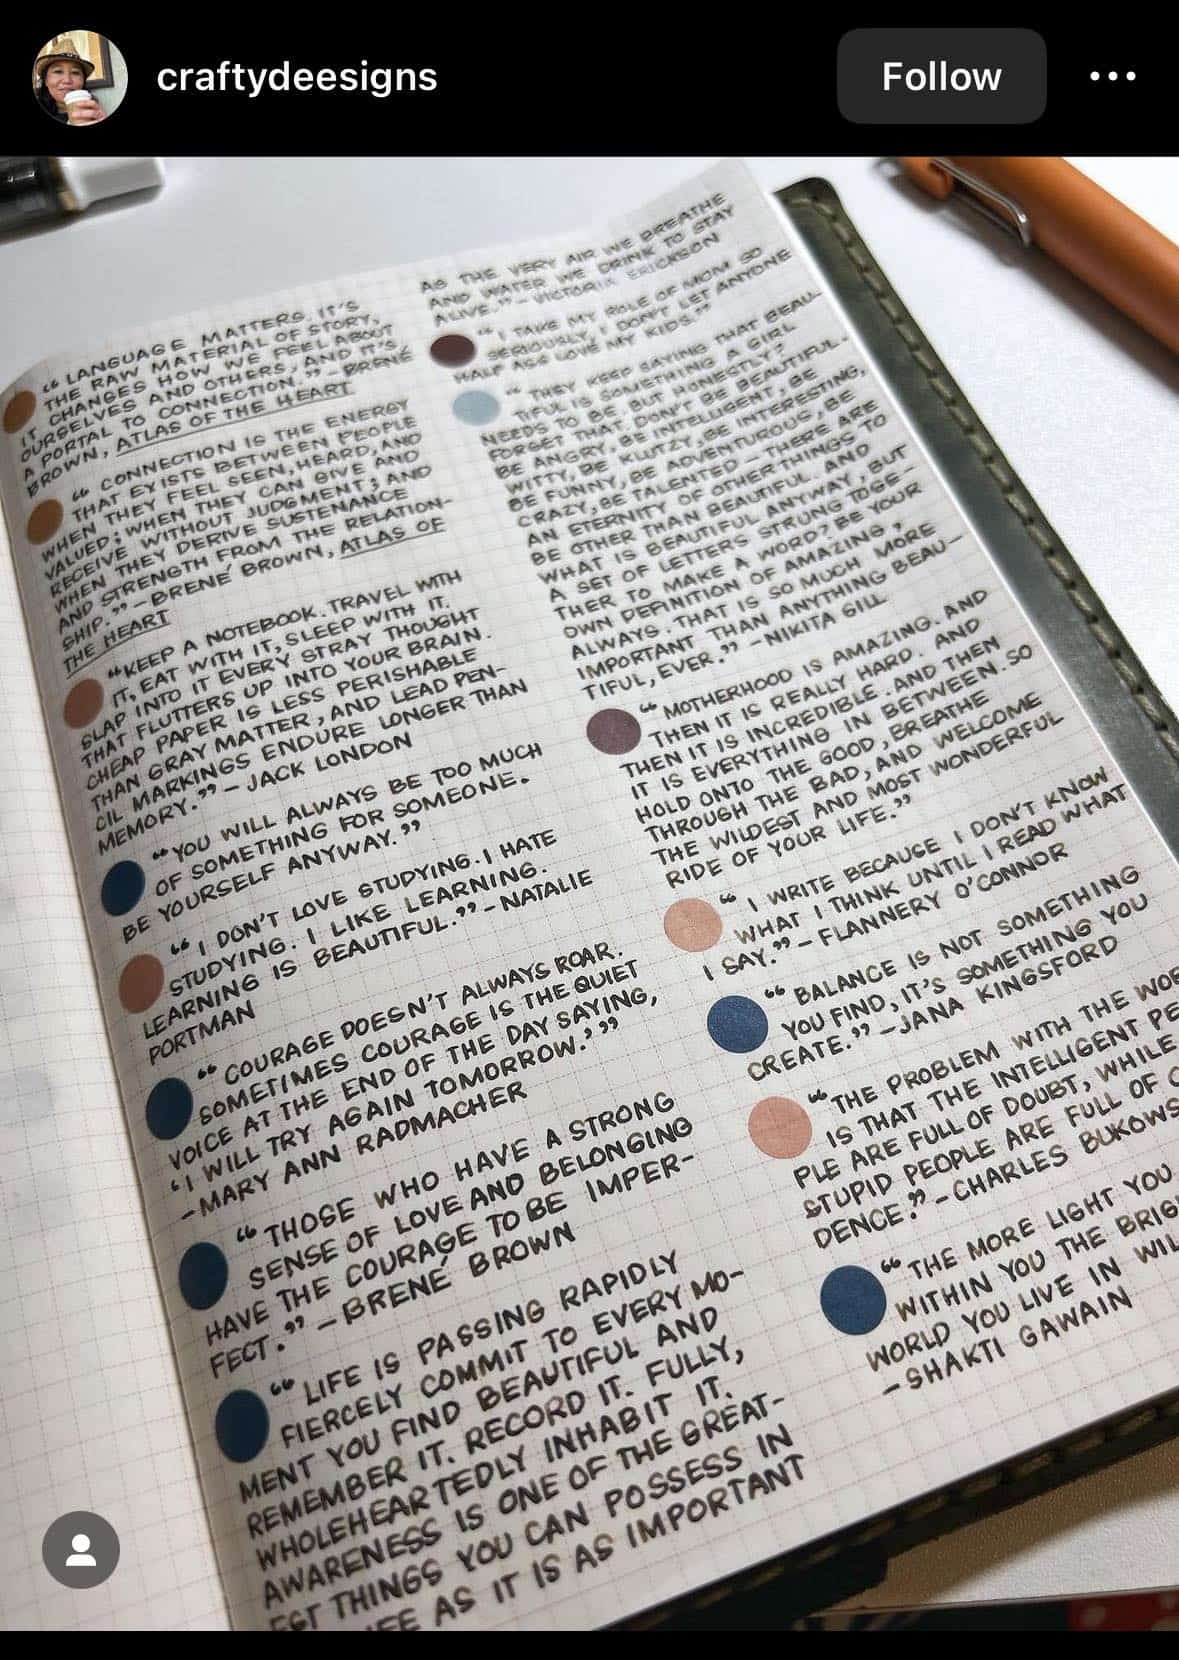 craftydeesigns
Follow
“LANGUAGE MATTERS. IT'S
THE RAW MATERIAL OF STORY,
IT CHANGES HOW WE FEEL ABOUT
OURSELVES AND OTHERS, AND IT'S
A PORTAL TO CONNECTION.” – BRENÉ
BROWN, ATLAS OF THE HEART
“CONNECTION IS THE ENERGY
THAT EXISTS BETWEEN PEOPLE
WHEN THEY FEEL SEEN, HEARD, AND
VALUED; WHEN THEY CAN GIVE AND
RECEIVE WITHOUT JUDGMENT; AND
WHEN THEY DERIVE SUSTENANCE
AND STRENGTH FROM THE RELATION-
SHIP.” – BRENÉ BROWN, ATLAS OF
THE HEART
“KEEP A NOTEBOOK. TRAVEL WITH
IT, EAT WITH IT, SLEEP WITH IT.
SLAP INTO IT EVERY STRAY THOUGHT
THAT FLUTTERS UP INTO YOUR BRAIN.
CHEAP PAPER IS LESS PERISHABLE
THAN GRAY MATTER, AND LEAD PEN-
CIL MARKINGS ENDURE LONGER THAN
MEMORY.” – JACK LONDON
“YOU WILL ALWAYS BE TOO MUCH
OF SOMETHING FOR SOMEONE.
BE YOURSELF ANYWAY.”
“I DON'T LOVE STUDYING. I HATE
STUDYING. I LIKE LEARNING.
LEARNING IS BEAUTIFUL.” – NATALIE
PORTMAN
“COURAGE DOESN'T ALWAYS ROAR.
SOMETIMES COURAGE IS THE QUIET
VOICE AT THE END OF THE DAY SAYING,
‘I WILL TRY AGAIN TOMORROW.’”
– MARY ANN RADMACHER
“THOSE WHO HAVE A STRONG
SENSE OF LOVE AND BELONGING
HAVE THE COURAGE TO BE IMPER-
FECT.” – BRENÉ BROWN
“LIFE IS PASSING RAPIDLY
FIERCELY COMMIT TO EVERY MO-
MENT YOU FIND BEAUTIFUL AND
REMEMBER IT. RECORD IT. FULLY,
WHOLEHEARTEDLY INHABIT IT.
AWARENESS IS ONE OF THE GREAT-
EST THINGS YOU CAN POSSESS IN
LIFE AS IT IS AS IMPORTANT
AS THE VERY AIR WE BREATHE
AND WATER WE DRINK TO STAY
ALIVE.” – VICTORIA ERICKSON
“I TAKE MY ROLE OF MOM SO
SERIOUSLY, I DON'T LET ANYONE
HALF ASS LOVE MY KIDS.”
“THEY KEEP SAYING THAT BEAU-
TIFUL IS SOMETHING A GIRL
NEEDS TO BE. BUT HONESTLY?
FORGET THAT. DON'T BE BEAUTIFUL.
BE ANGRY, BE INTELLIGENT, BE
WITTY, BE KLUTZY, BE INTERESTING,
BE FUNNY, BE ADVENTUROUS, BE
CRAZY, BE TALENTED – THERE ARE
AN ETERNITY OF OTHER THINGS TO
BE OTHER THAN BEAUTIFUL. AND
WHAT IS BEAUTIFUL ANYWAY, BUT
A SET OF LETTERS STRUNG TOGE-
THER TO MAKE A WORD? BE YOUR
OWN DEFINITION OF AMAZING,
ALWAYS. THAT IS SO MUCH MORE
IMPORTANT THAN ANYTHING BEAU-
TIFUL, EVER.” – NIKITA GILL
“MOTHERHOOD IS AMAZING. AND
THEN IT IS REALLY HARD. AND
THEN IT IS INCREDIBLE. AND THEN
IT IS EVERYTHING IN BETWEEN. SO
HOLD ONTO THE GOOD, BREATHE
THROUGH THE BAD, AND WELCOME
THE WILDEST AND MOST WONDERFUL
RIDE OF YOUR LIFE.”
“I WRITE BECAUSE I DON'T KNOW
WHAT I THINK UNTIL I READ WHAT
I SAY.” – FLANNERY O'CONNOR
“BALANCE IS NOT SOMETHING
YOU FIND, IT'S SOMETHING YOU
CREATE.” – JANA KINGSFORD
“THE PROBLEM WITH THE WOR
IS THAT THE INTELLIGENT PE
PLE ARE FULL OF DOUBT, WHILE
STUPID PEOPLE ARE FULL OF C
DENCE.” – CHARLES BUKOWS
“THE MORE LIGHT YOU
WITHIN YOU THE BRIG
WORLD YOU LIVE IN WIL
– SHAKTI GAWAIN